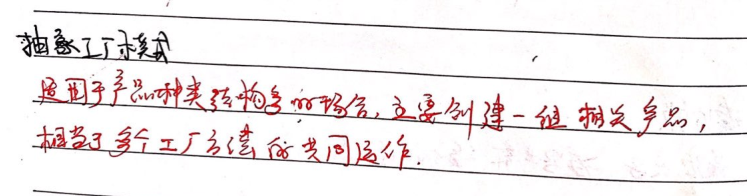 抽象工厂模式
适用于产品种类结构多的场合,主要创建一组相关产品,
相当于多个工厂方法的共同运作.